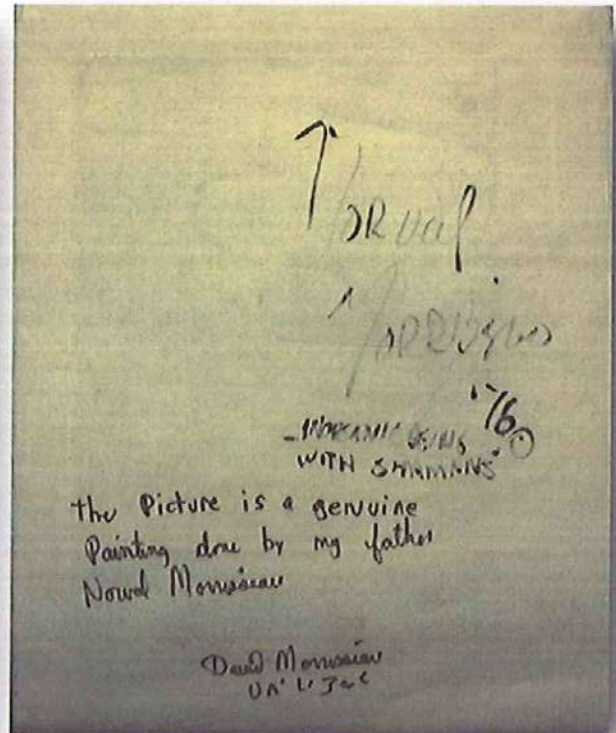 Norval
Morrisseau
'76 ©
WITH SHAMANS"
the Picture is a genuine
Painting done by my father
Norval Morrisseau
David Morrisseau